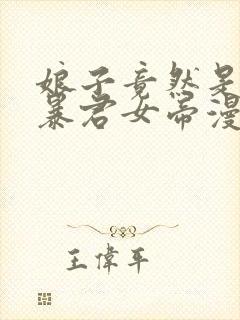 娘子竟然是
暴君女帝漫
王偉平